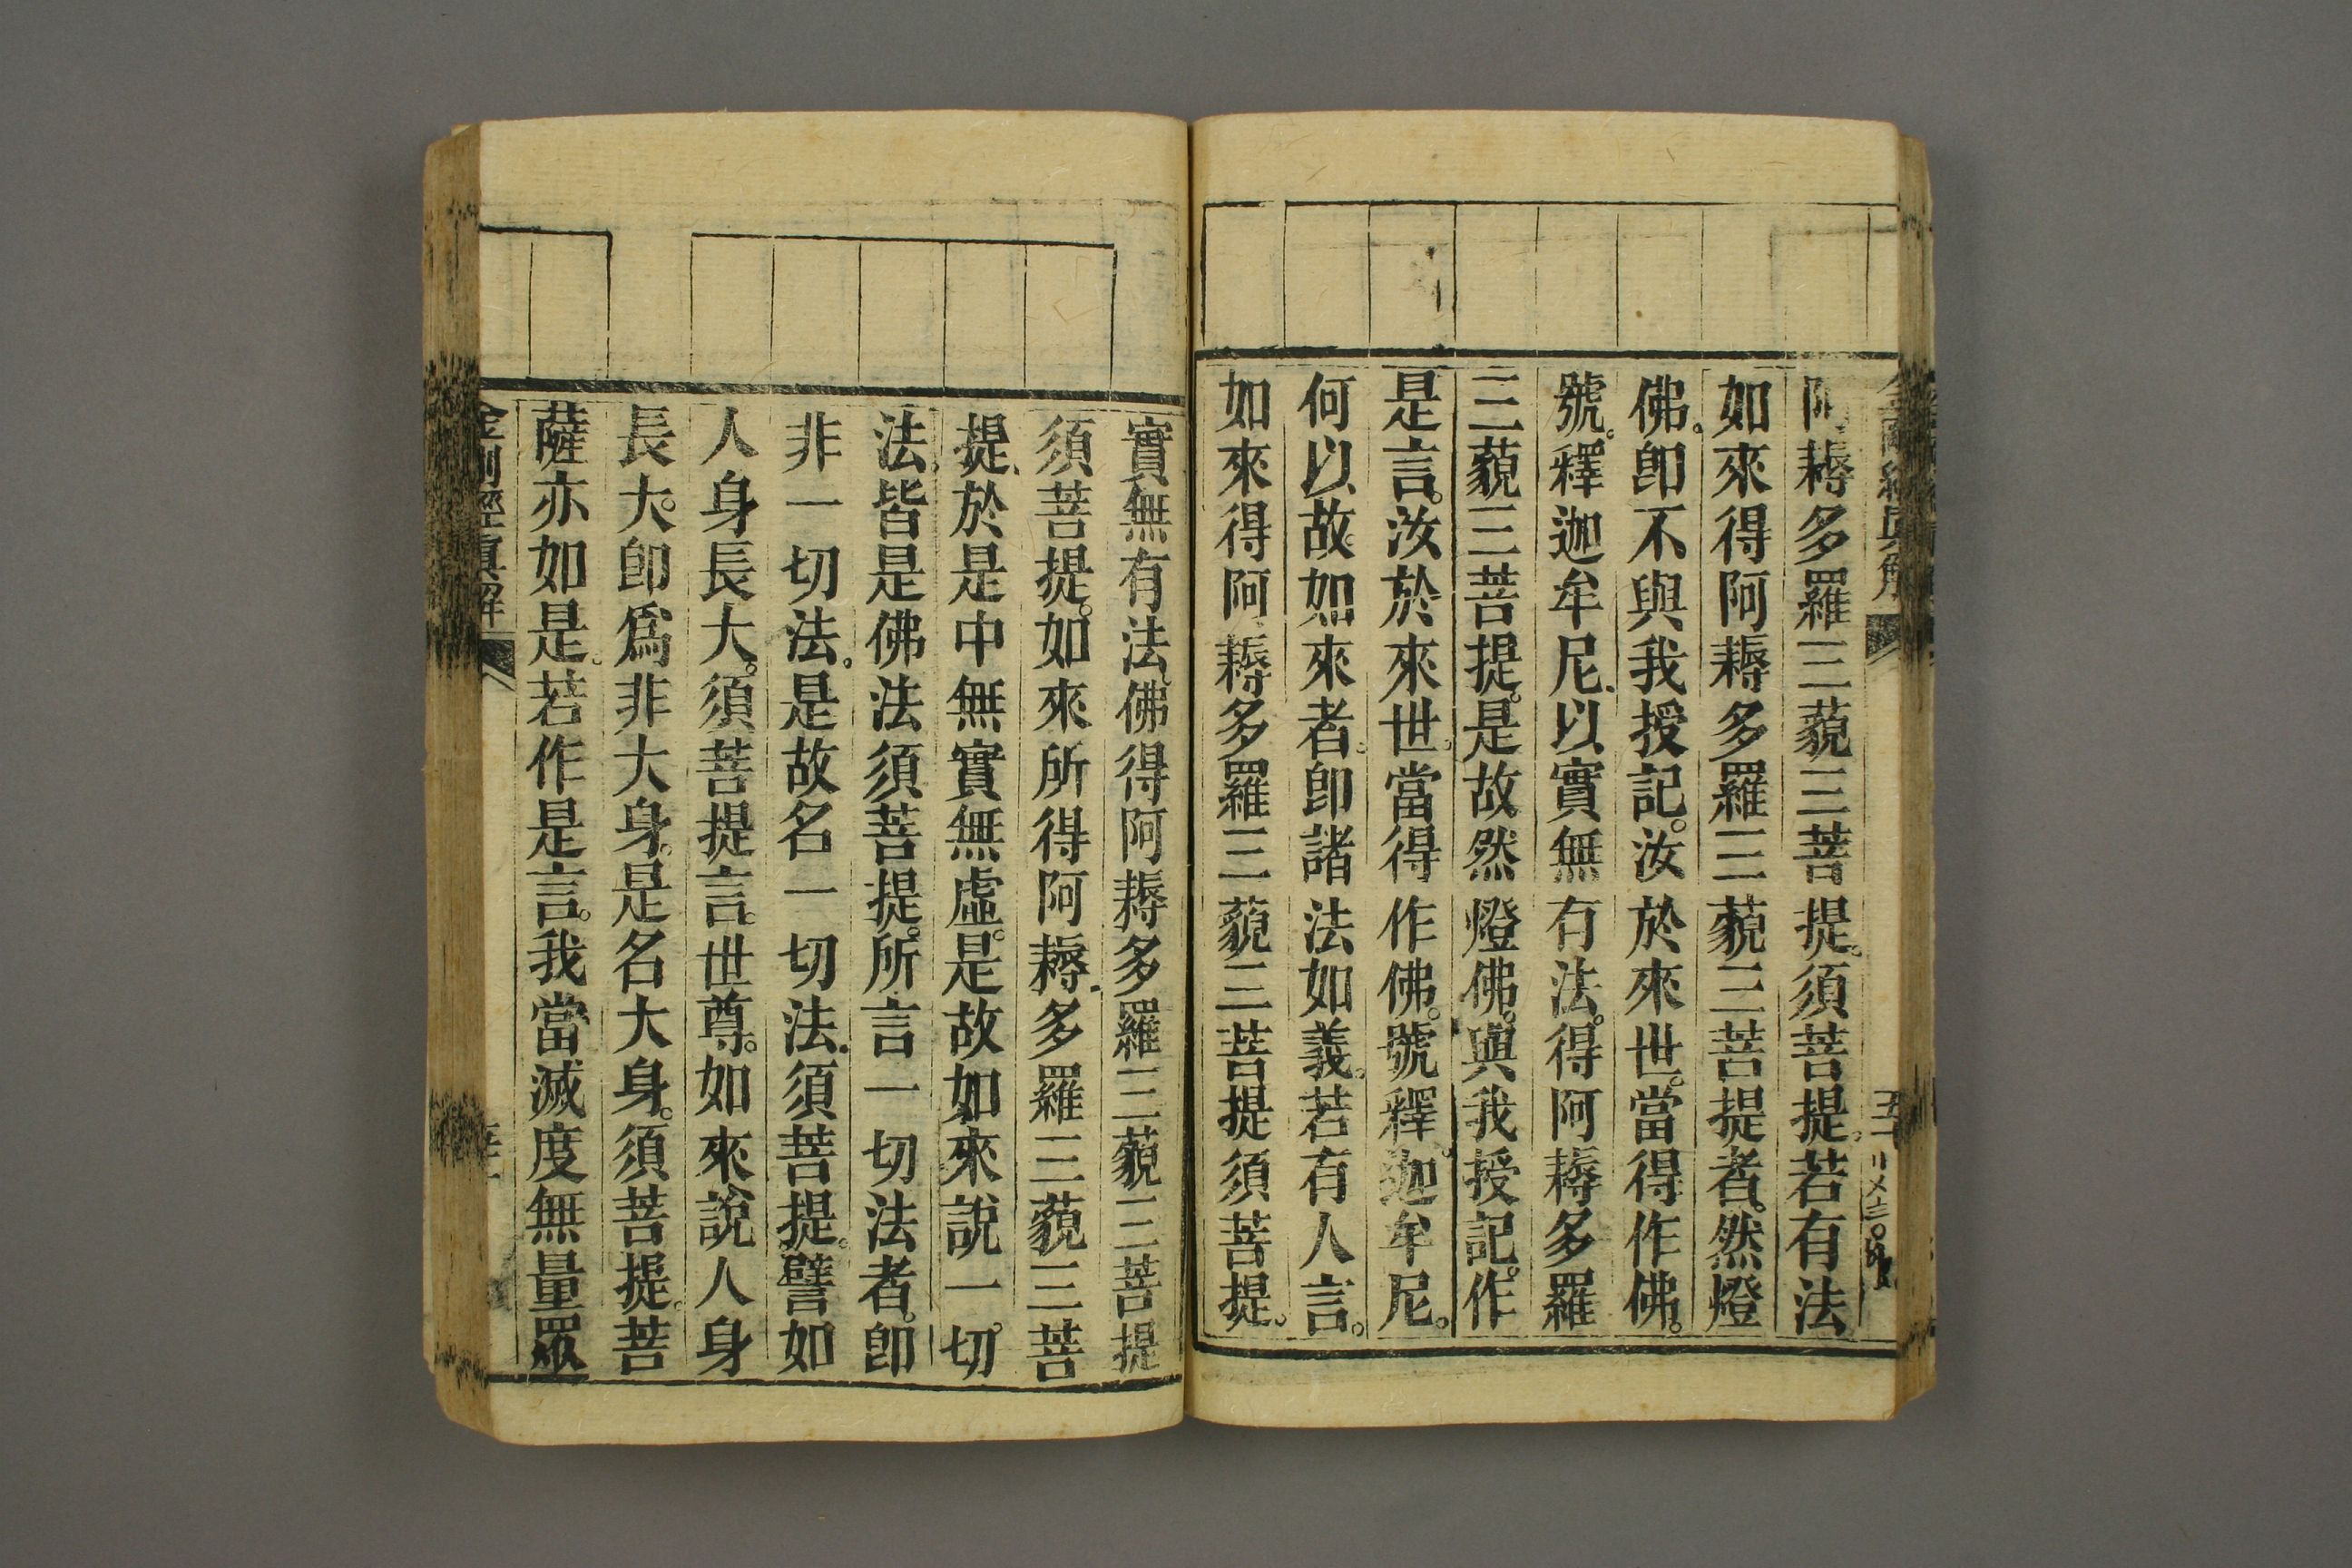 阿耨多羅三藐三菩提。須菩提。若有法
如來得阿耨多羅三藐三菩提者。然燈
佛。即不與我授記。汝於來世。當得作佛。
號。釋迦牟尼。以實無有法。得阿耨多羅
三藐三菩提。是故然燈佛。與我授記。作
是言。汝於來世。當得作佛。號釋迦牟尼。
何以故。如來者。即諸法如義。若有人言。
如來得阿耨多羅三藐三菩提須菩提。
實無有法。佛得阿耨多羅三藐三菩提
須菩提。如來所得阿耨多羅三藐三菩
提。於是中無實無虛。是故如來說一切
法。皆是佛法須菩提。所言一切法者。即
非一切法。是故名一切法。須菩提。譬如
人身長大。須菩提言。世尊。如來說人身
長大。即爲非大身。是名大身。須菩提。菩
薩亦如是。若作是言。我當滅度無量眾
金剛經真解